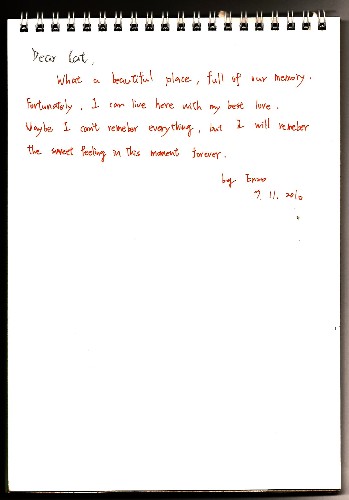 Dear Cat,
What a beautiful place, full of our memory.
Fortunately, I can live here with my best love.
Maybe I can't remeber everything, but I will remeber
the sweet feeling in this moment forever.
by
7. 11. 2010